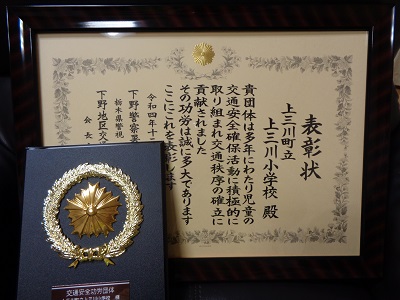 表彰状
上三川町立
上三川小学校 殿
貴団体は多年にわたり児童の
交通安全確保活動に積極的に
取り組まれ交通秩序の確立に
貢献されました
その功労は誠に多大であります
ここにこれを表彰します
令和四年十
下野警察署
栃木県警視
下野地区交
会長
交通安全功労団体